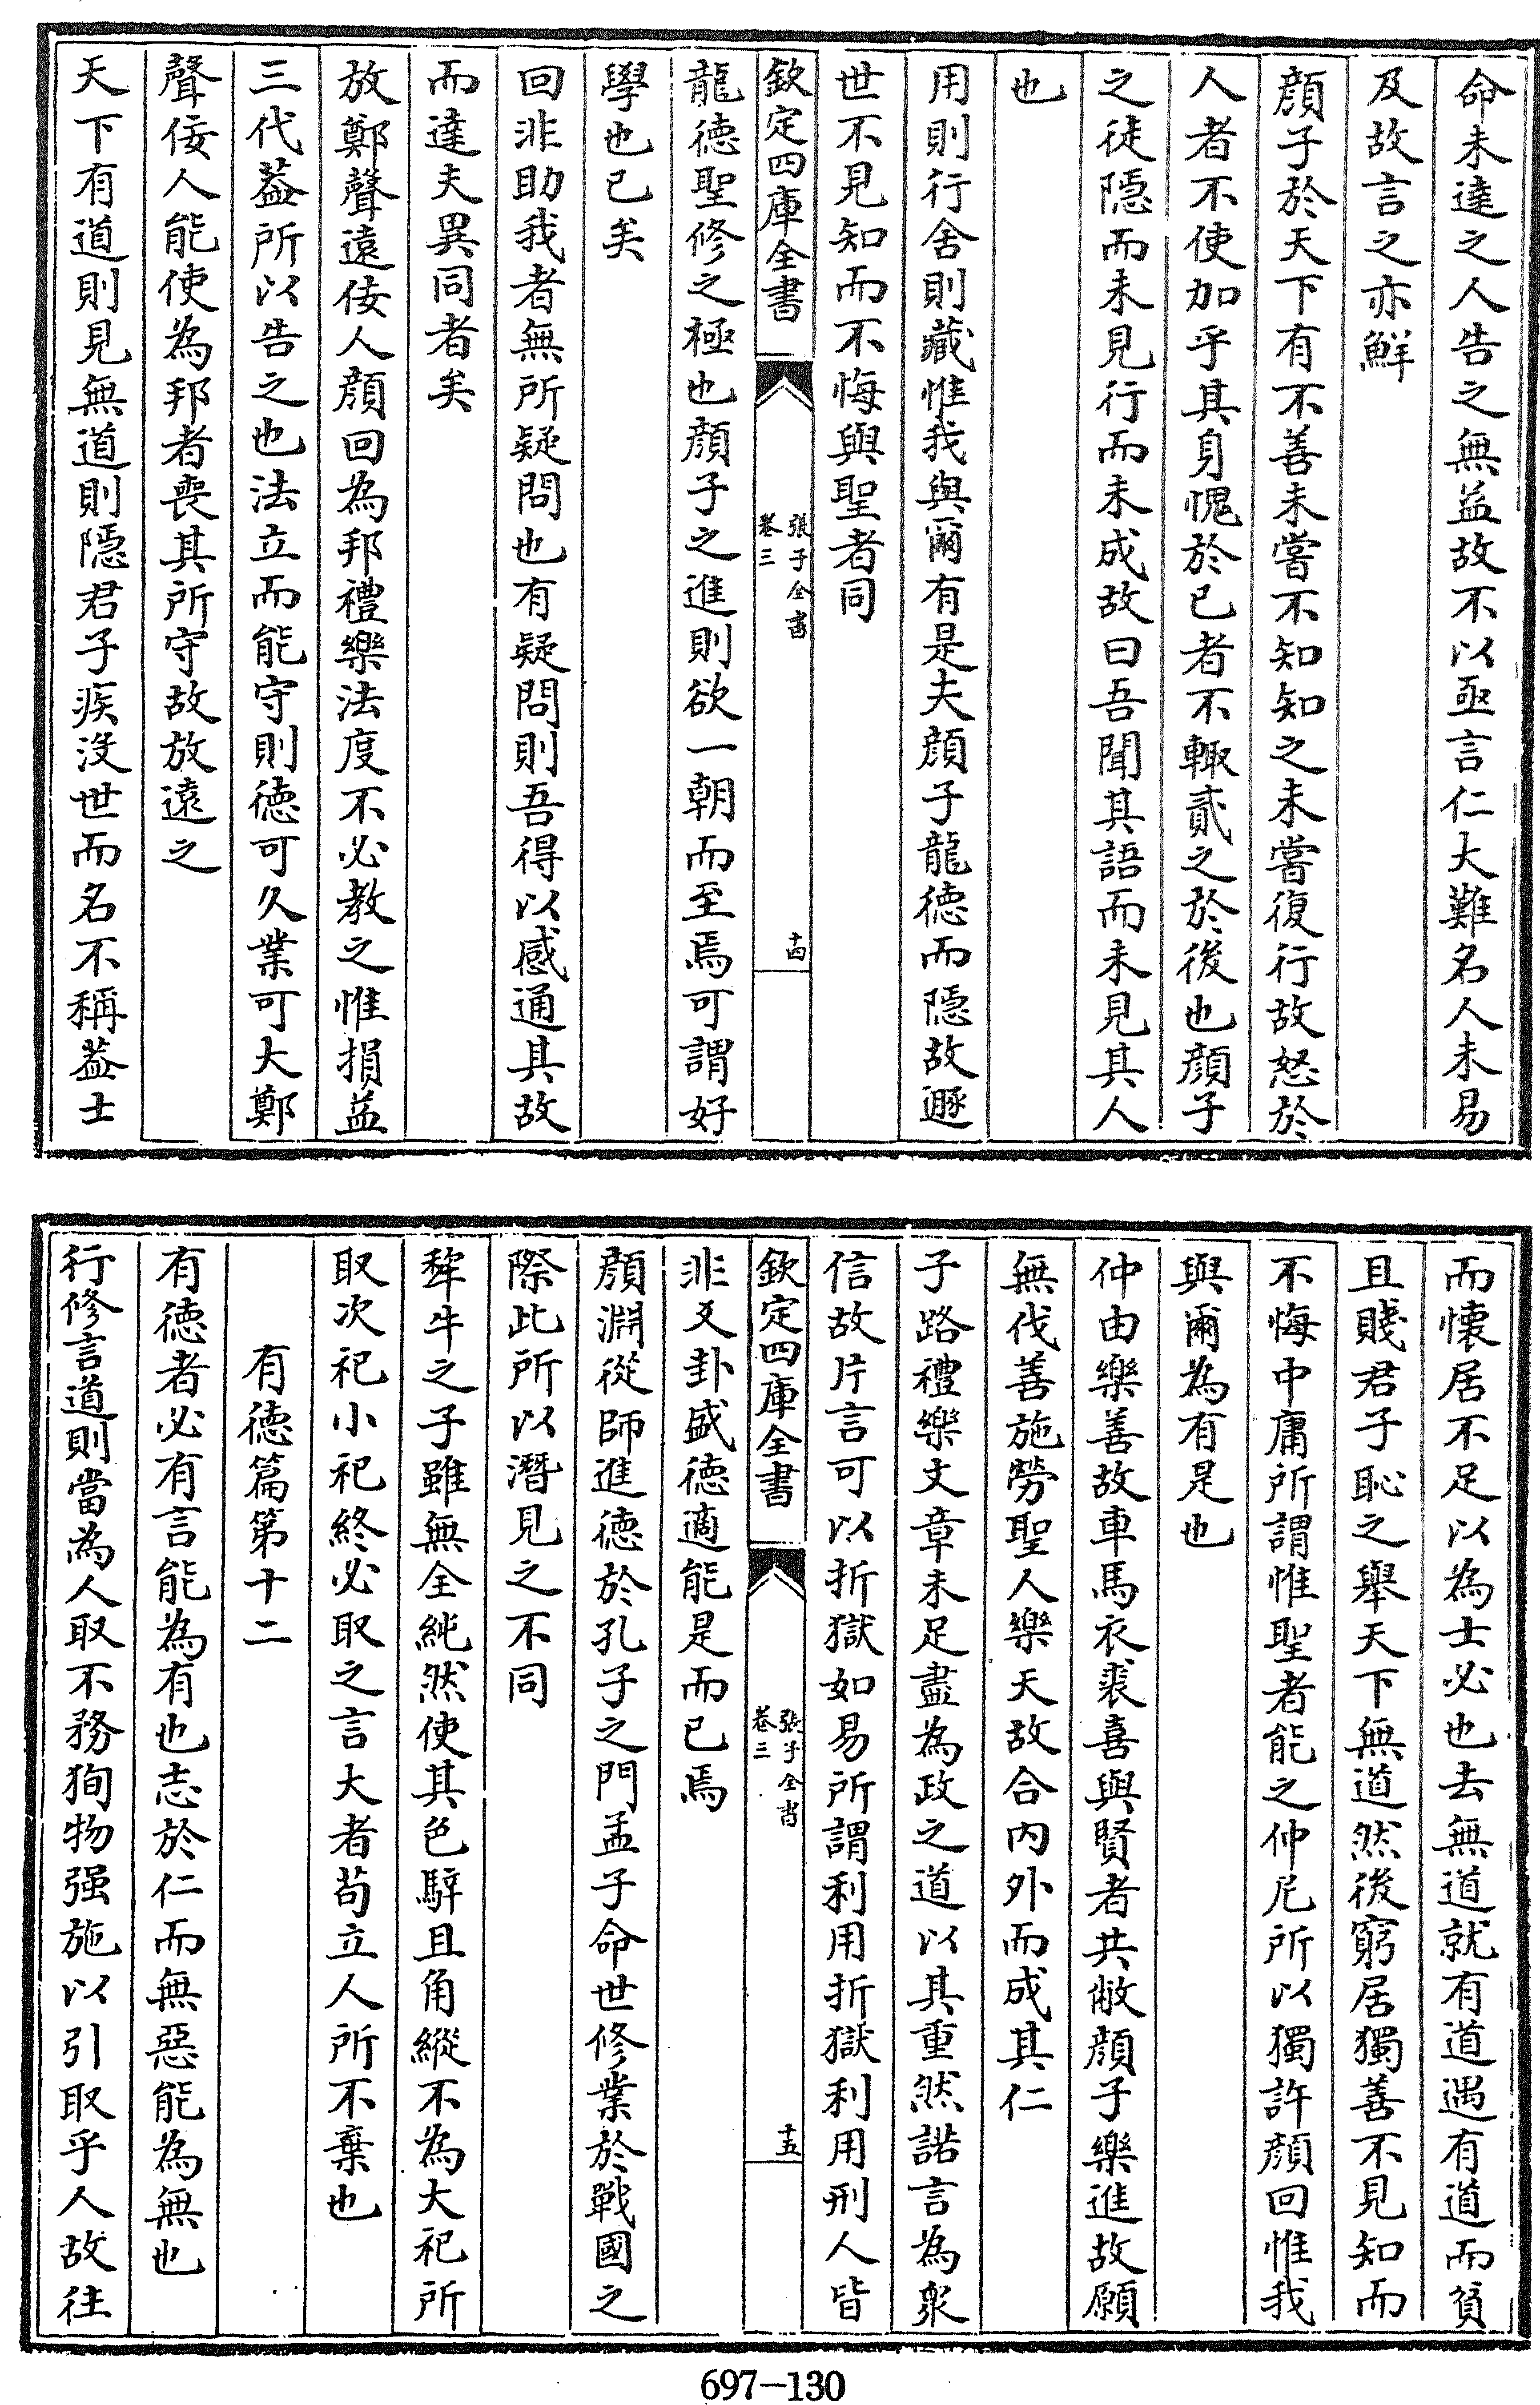 命未達之人告之無益故不以亟言仁大難名人未易
及故言之亦鮮
顔子於天下有不善未嘗不知知之未嘗復行故怒於
人者不使加乎其身愧於已者不輙貳之於後也顔子
之徒隠而未見行而未成故曰吾聞其語而未見其人
也
用則行舍則藏惟我與爾有是夫顔子龍徳而隠故遯
世不見知而不悔與聖者同
欽定四庫全書
張子全書
卷三
十四
龍徳聖修之極也顔子之進則欲一朝而至焉可謂好
學也已矣
回非助我者無所疑問也有疑問則吾得以感通其故
而達夫異同者矣
放鄭聲遠佞人顔回為邦禮樂法度不必教之惟損益
三代葢所以告之也法立而能守則徳可久業可大鄭
聲佞人能使為邦者喪其所守故放遠之
天下有道則見無道則隠君子疾沒世而名不稱葢士
而懐居不足以為士必也去無道就有道遇有道而貧
且賤君子恥之舉天下無道然後窮居獨善不見知而
不悔中庸所謂惟聖者能之仲尼所以獨許顔回惟我
與爾為有是也
仲由樂善故車馬衣裘喜與賢者共敝顔子樂進故願
無伐善施勞聖人樂天故合内外而成其仁
子路禮樂文章未足盡為政之道以其重然諾言為衆
信故片言可以折獄如易所謂利用折獄利用刑人皆
欽定四庫全書
張子全書
卷三
十五
非爻卦盛徳適能是而已焉
顔淵從師進徳於孔子之門孟子命世修業於戰國之
際此所以潛見之不同
犂牛之子雖無全純然使其色騂且角縱不為大祀所
取次祀小祀終必取之言大者苟立人所不棄也
有徳篇第十二
有徳者必有言能為有也志於仁而無惡能為無也
行修言道則當為人取不務狥物强施以引取乎人故往
697-130